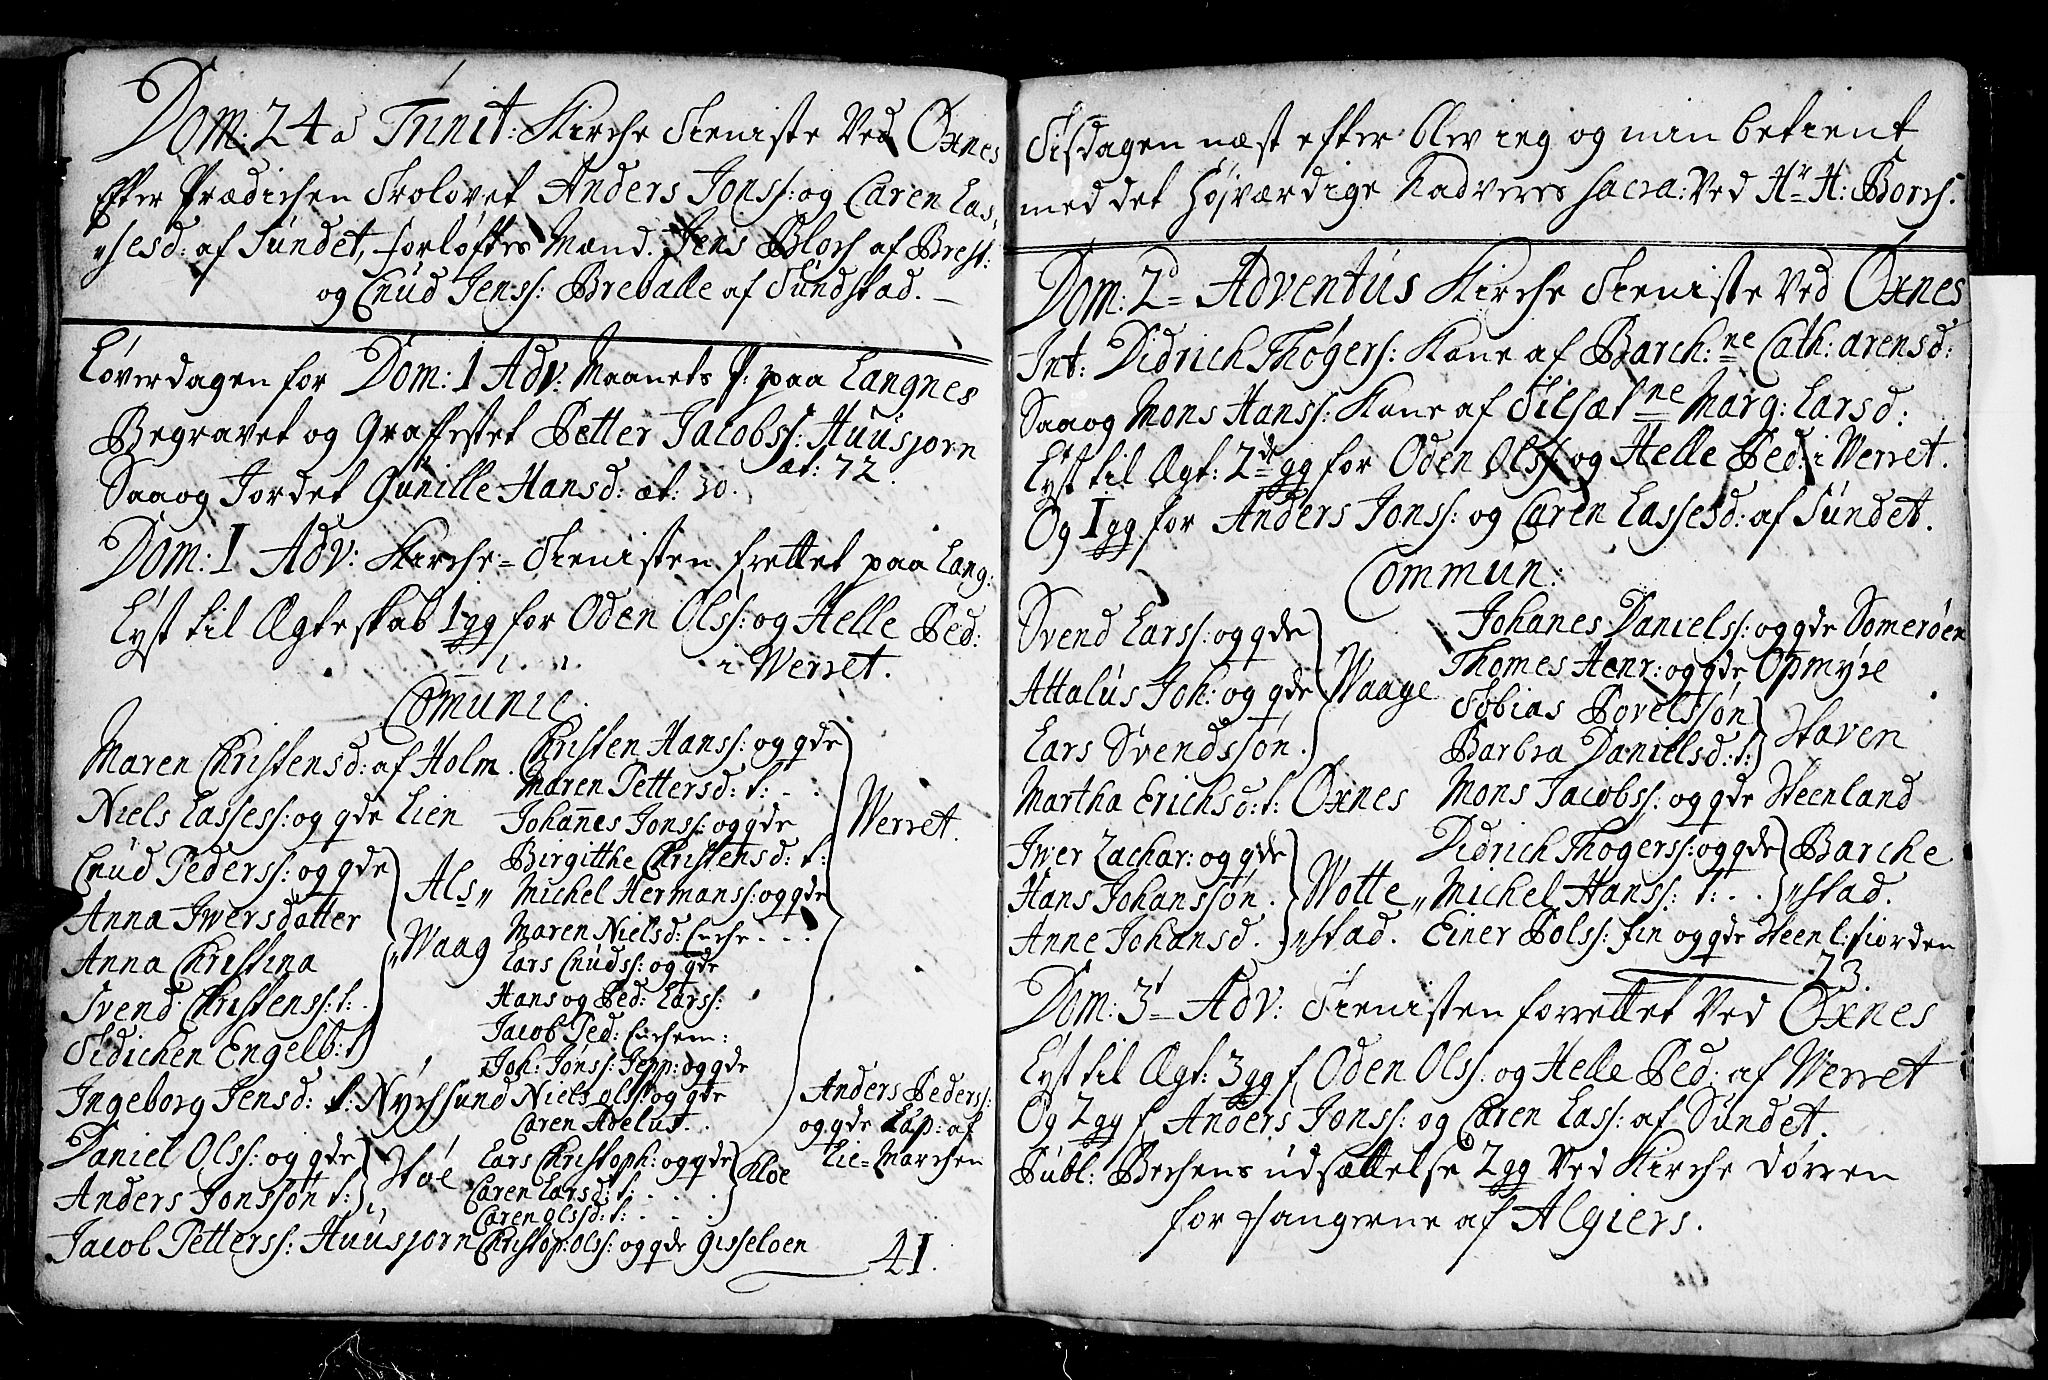 Dom: 24 a Trinit: Kirche Tieniste Ved Oxnes
Efter Prædichen Trolovet Anders Jonss: og Caren Las„
„sesd: af Sundet, forløftes Mænd. Jens Bloch af Brest:
og Cnud Jenss: Breballe af Sundstad. —
Løverdagen for Dom: 1 Adv: Maanets P: paa Langnes
Begravet og Graffæstet Petter Jacobss: Huusjorn
æt: 72.
Saaog Jordet Gunille Hansd: æt: 30.
Dom: 1 Adv: Kirche=Tienisten frettet paa Lang:
Lyst til Ægteskab 1 gg for Oden Olss: og Helle Ped:
i Werret.
Comunic:
Maren Christensd: af Holm.
Niels Lassess: og qde Lien
Cnud Pederss: og qde
Anna Iwersdatter
Anna Christina
Svend Christenss: t: .
Sidichen Engelb: t
Als„
„Waag
Ingeborg Jensd: t: Nychsund
Daniel Olss: og qde
Anders Jonssøn t:
Støe
Jacob Petterss: Huusjorn
Christen Hanss: og qde
Maren Pettersd: t: - -
Johannes Jonss: og qde
Birgitthe Christensd: t:
Michel Hermanss: og qde
Maren Nielsd: Enche - - -
Lars Cnudss: og qde
Hans og Ped: Larss:
Jacob Ped: Enchem:
Joh: Jonss: Jepp: og qde
Niels Olss: og qde
Caren Adelust. .
Werret.
Lars Christoph: og qde
Caren Larsd: t: - - -
Caren Olssd: t: - - -
Kloe
Christop: Olss: og qde Gisseloen
Anders Pederss:
og qde Lap: af
Lie=Marchen
41.
Tisdagen næst efter blev ieg og min betient
med det højværdige Nadveres sacra: Ved Hr H: Borch.
Dom: 2d Adventus Kirche Tieniste Ved Oxnes
Int: Didrich Thøgers: Kone af Barch: ne Cath: arensd:
Saaog Mons Hanss: Kone af Tilsæt ne Marg: Larsd:
Lyst til Ægt: 2de gg for Oden Olss: og Helle Ped: i Werret.
Og 1 gg for Anders Jonss: og Caren Lassesd: af Sundet.
Commun:
Svend Larss: og qde
Attalus Joh: og qde
Lars Svendssøn.
Waage
Martha Erichsd: t: Oxnes
Iwer Zachar: og qde
Hans Johanssøn.
Anne Johansd.
Wotte„
„stad.
Johanes Danielss: og qde Somerøen
Thomes Henr: og qde Opmyre
Tobias Povelssøn
Barbra Danielsd: t:
Staven
Mons Jacobss: og qde Steenland
Didrich Thogerss: og qde
Michel Hanss: t: . .
Barche
„stad.
Einer Polss: fin og qde Steenl: fiorden
23
Dom: 3t Adv: Tienisten forrettet Ved Oxnes
Lyst til Ægt: 3 gg f Oden Olss: og Helle Ped: af Werret
Og 2 gg f Anders Jonss: og Caren Lass: af Sundet.
Publ: Bechens udsættelse 2 gg Ved Kirche dørren
for fangerne af Algiers.